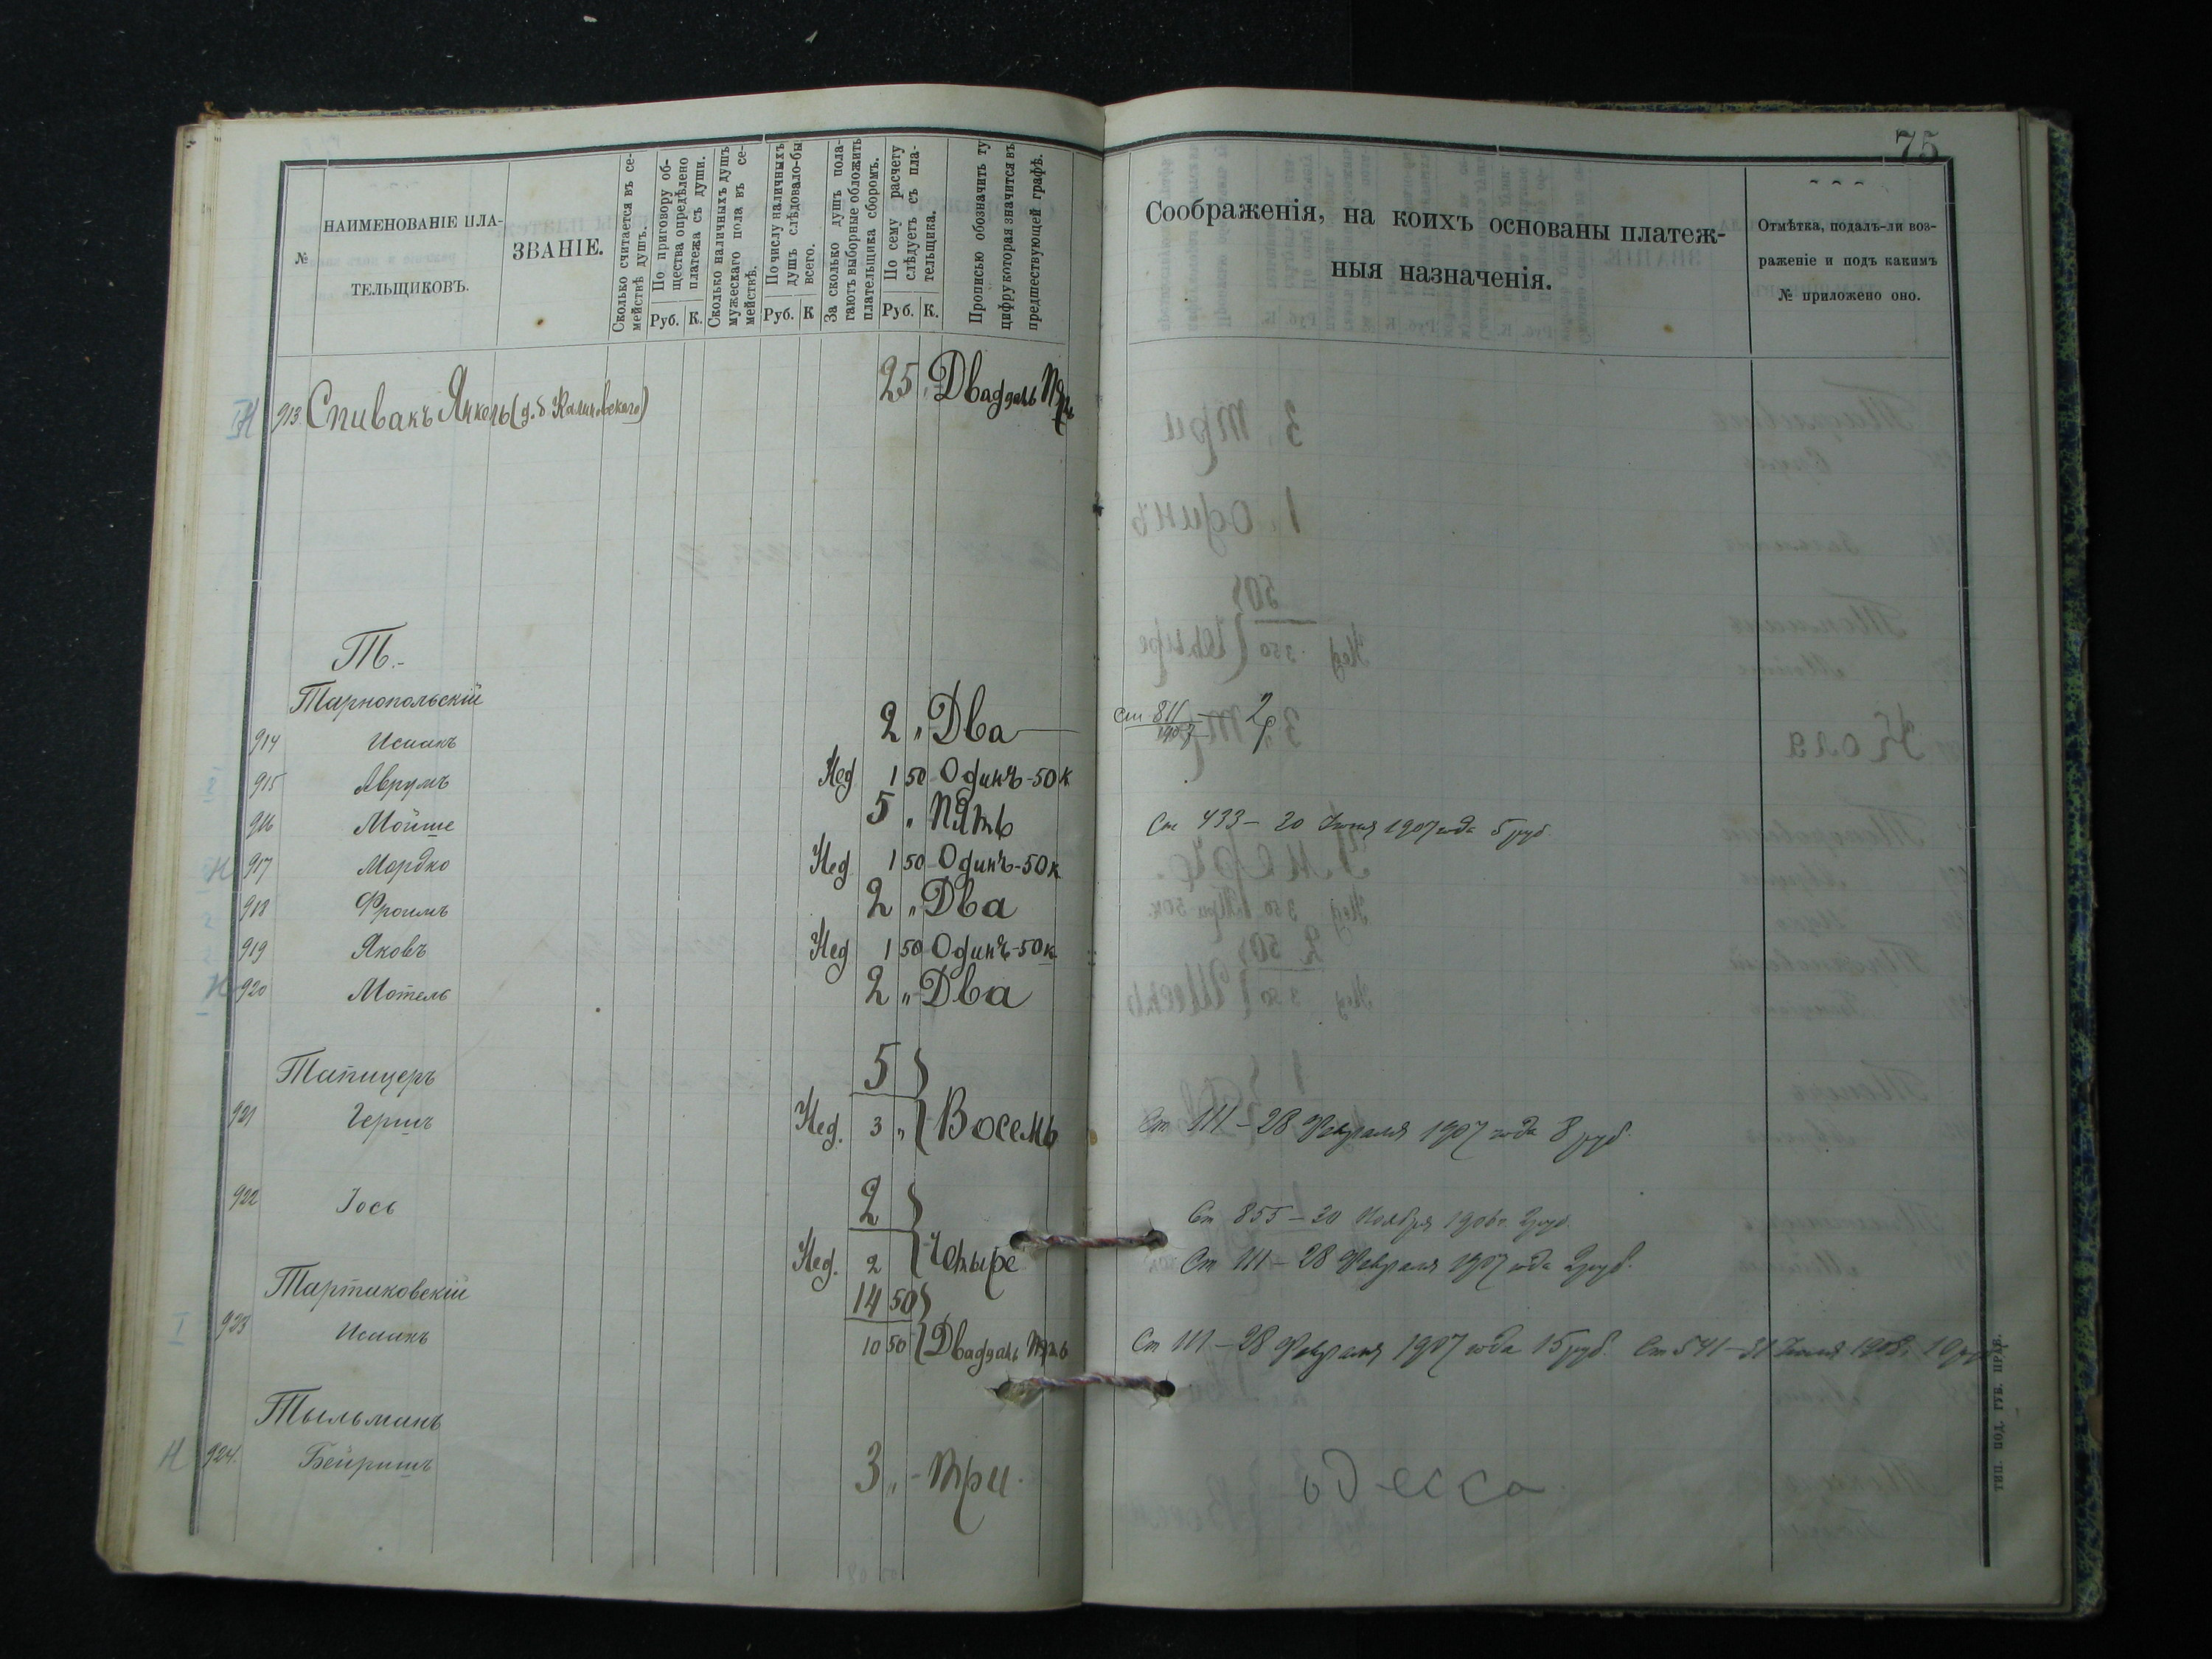 75
№
НАИМЕНОВАНІЕ ПЛА-
ТЕЛЬЩИКОВЪ.
ЗВАНІЕ.
Сколько считается въ се-
мействѣ душъ.
По приговору об-
щества опредѣлено
платежа съ души.
Руб. К.
Сколько наличныхъ душъ
мужескаго пола въ се-
мействѣ.
По числу наличныхъ
душъ слѣдовало-бы
всего.
Руб. К
За сколько душъ пола-
гаютъ выборные обложить
плательщика сборомъ.
По сему расчету
слѣдуетъ съ пла-
тельщика.
Руб. К.
Прописью обозначить ту
цифру которая значится въ
предшествующей графѣ.
Соображенія, на коихъ основаны платеж-
ныя назначенія.
Отмѣтка, подалъ-ли воз-
раженіе и подъ какимъ
№ приложено оно.
913 Спивакъ Янкель (д. б. Калиновскаго) 25 „ Двадцать Пять
Т.-
Тарнопольскій
914 Исаакъ 2 „ Два ст 811 2р
915 Аврумъ Нед 1 50 Одинъ-50 к
916 Мойше 5 „ Пять Ст 433 – 20 Іюня 1907 года 5 руб
917 Мордко Нед 1 50 Одинъ-50 к
918 Фроимъ 2 „ Два
919 Яковъ Нед 1 50 Одинъ-50 к
920 Мотель 2 „ Два
Тапицеръ 5
921 Гершъ Нед. 3 „ Восемь Ст 111 – 28 Февраля 1907 года 8 руб.
922 Іось 2 Ст 855 – 20 Ноября 1906 г. 2 руб.
Нед. 2 Четыре Ст 111 – 28 Февраля 1907 года 2 руб.
Тартаковскій 14 50
I 923 Исаакъ 10 50 Двадцать Пять Ст 111 – 28 Февраля 1907 года 15 руб. Ст 541 – 31 Іюля 1908 г. 10 руб
Тыльманъ
Н 924. Бейришъ 3 „ - Три. Одесса
ТИП. ПОД. ГУБ. ПРАВ.